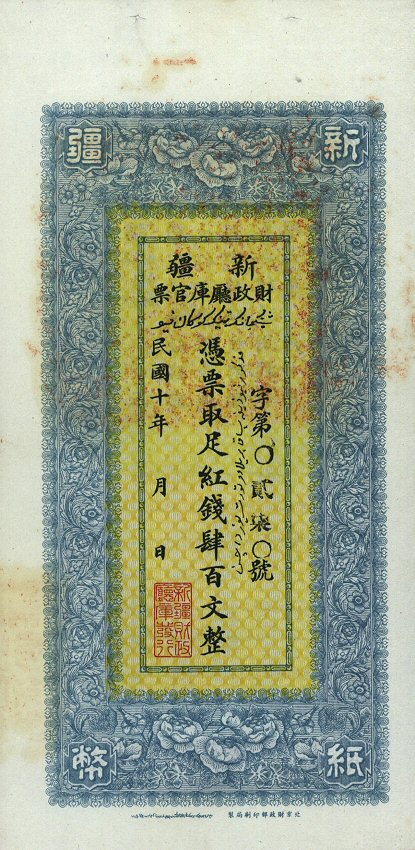 新疆
新疆
財政廳庫官票
字第〇貳柒〇號
憑票取足紅錢肆百文整
民國十年 月 日
新疆財政
廳庫發行
紙幣
北京財政部印刷局製